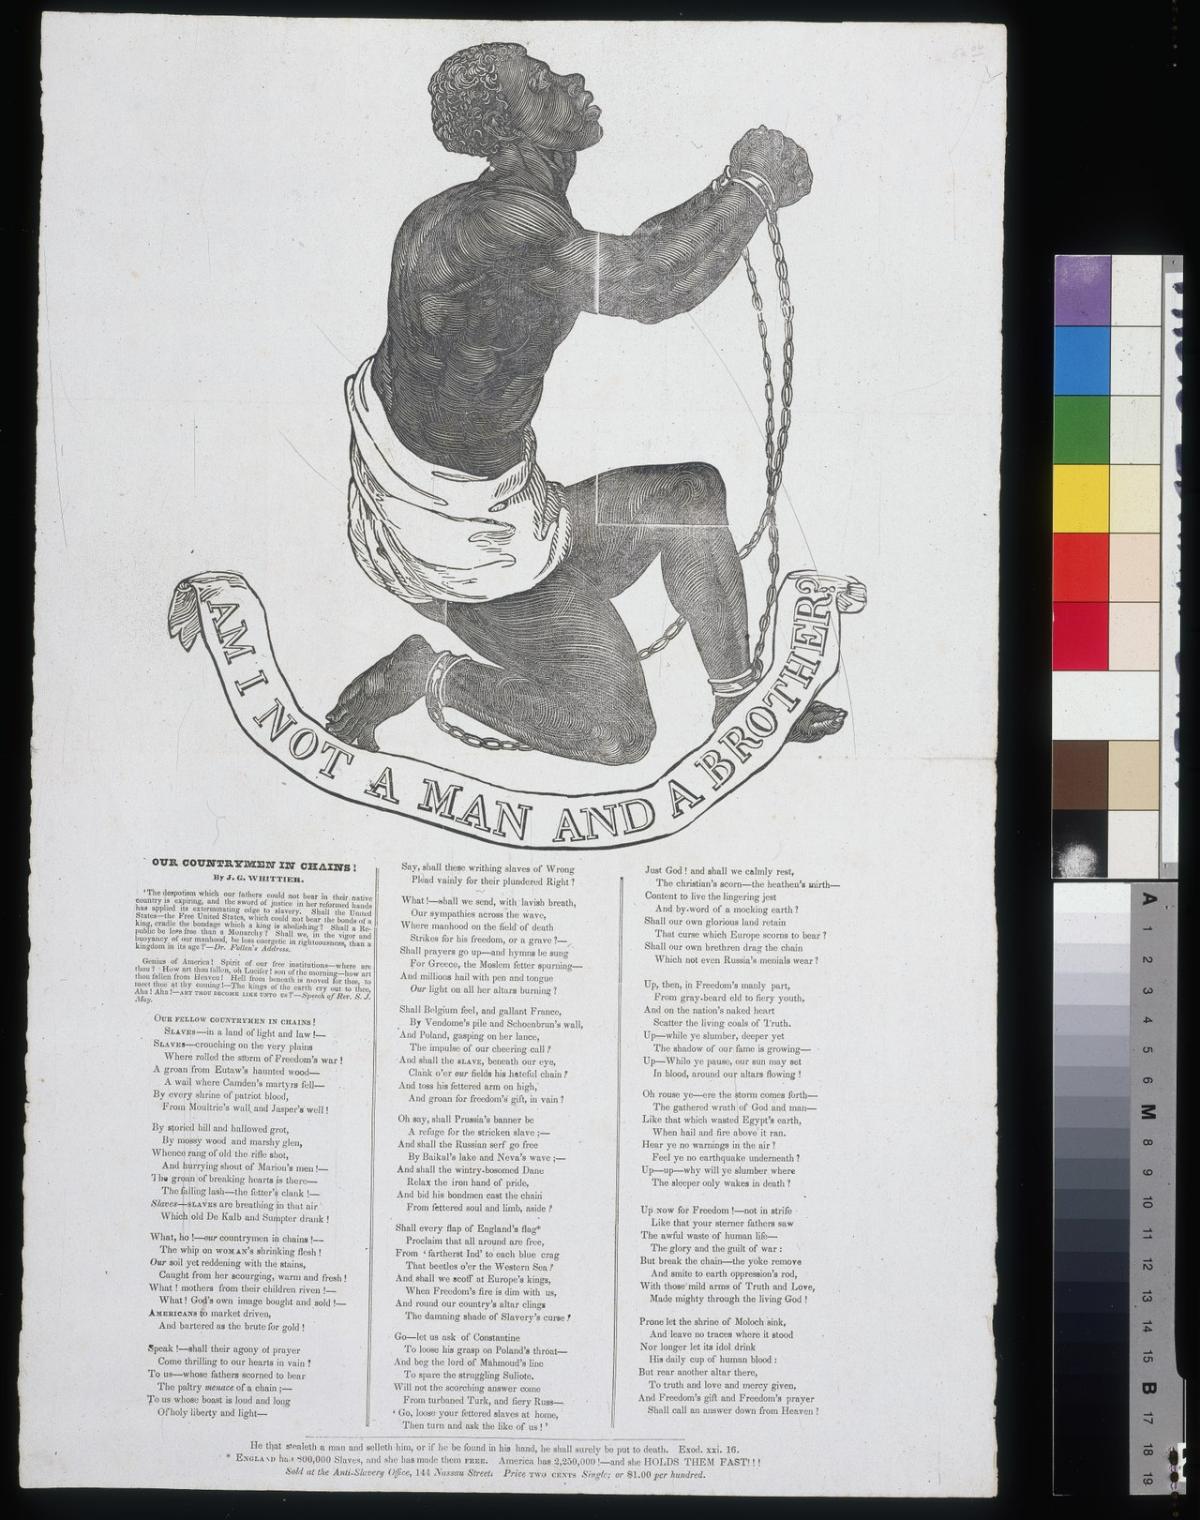 AM I NOT A MAN AND A BROTHER?
OUR COUNTRYMEN IN CHAINS!
By J. G. WHITTIER.
'The despotism which our fathers could not bear in their native
country is expiring, and the sword of justice in her reformed hands
has applied its exterminating edge to slavery. Shall the United
States—the Free United States, which could not bear the bonds of a
king, cradle the bondage which a king is abolishing? Shall a Re-
public be less free than a Monarchy? Shall we, in the vigor and
buoyancy of our manhood, be less energetic in righteousness, than a
kingdom in its age?'—Dr. Follen's Address.
Genius of America! Spirit of our free institutions—where art
thou? How art thou fallen, oh Lucifer! son of the morning—how art
thou fallen from Heaven! Hell from beneath is moved for thee, to
meet thee at thy coming!—The kings of the earth cry out to thee,
Aha! Aha!—ART THOU BECOME LIKE UNTO US?—Speech of Rev. S. J.
May.
OUR FELLOW COUNTRYMEN IN CHAINS!
SLAVES—in a land of light and law!—
SLAVES—crouching on the very plains
Where rolled the storm of Freedom's war!
A groan from Eutaw's haunted wood—
A wail where Camden's martyrs fell—
By every shrine of patriot blood,
From Moultrie's wall and Jasper's well!
By storied hill and hallowed grot,
By mossy wood and marshy glen,
Whence rang of old the rifle shot,
And hurrying shout of Marion's men!—
The groan of breaking hearts is there—
The falling lash—the fetter's clank!—
Slaves—SLAVES are breathing in that air
Which old De Kalb and Sumpter drank!
What, ho!—our countrymen in chains!—
The whip on WOMAN'S shrinking flesh!
Our soil yet reddening with the stains,
Caught from her scourging, warm and fresh!
What! mothers from their children riven!—
What! God's own image bought and sold!—
AMERICANS to market driven,
And bartered as the brute for gold!
Speak!—shall their agony of prayer
Come thrilling to our hearts in vain?
To us—whose fathers scorned to bear
The paltry menace of a chain;—
To us whose boast is loud and long
Of holy liberty and light—
Say, shall these writhing slaves of Wrong
Plead vainly for their plundered Right?
What!—shall we send, with lavish breath,
Our sympathies across the wave,
Where manhood on the field of death
Strikes for his freedom, or a grave?—
Shall prayers go up—and hymns be sung
For Greece, the Moslem fetter spurning—
And millions hail with pen and tongue
Our light on all her altars burning?
Shall Belgium feel, and gallant France,
By Vendome's pile and Schoenbrun's wall,
And Poland, gasping on her lance,
The impulse of our cheering call?
And shall the SLAVE, beneath our eye,
Clank o'er our fields his hateful chain?
And toss his fettered arm on high,
And groan for freedom's gift, in vain?
Oh say, shall Prussia's banner be
A refuge for the stricken slave;—
And shall the Russian serf go free
By Baikal's lake and Neva's wave;—
And shall the wintry-bosomed Dane
Relax the iron hand of pride,
And bid his bondmen cast the chain
From fettered soul and limb, aside?
Shall every flap of England's flag*
Proclaim that all around are free,
From 'farthest Ind' to each blue crag
That beetles o'er the Western Sea?
And shall we scoff at Europe's kings,
When Freedom's fire is dim with us,
And round our country's altar clings
The damning shade of Slavery's curse?
Go—let us ask of Constantine
To loose his grasp on Poland's throat—
And beg the lord of Mahmoud's line
To spare the struggling Suliote.
Will not the scorching answer come
From turbaned Turk, and fiery Russ—
'Go, loose your fettered slaves at home,
Then turn and ask the like of us!'
Just God! and shall we calmly rest,
The christian's scorn—the heathen's mirth—
Content to live the lingering jest
And by-word of a mocking earth?
Shall our own glorious land retain
That curse which Europe scorns to bear?
Shall our own brethren drag the chain
Which not even Russia's menials wear?
Up, then, in Freedom's manly part,
From gray-beard eld to fiery youth,
And on the nation's naked heart
Scatter the living coals of Truth.
Up—while ye slumber, deeper yet
The shadow of our fame is growing—
Up—While ye pause, our sun may set
In blood, around our altars flowing!
Oh rouse ye—ere the storm comes forth—
The gathered wrath of God and man—
Like that which wasted Egypt's earth,
When hail and fire above it ran.
Hear ye no warnings in the air?
Feel ye no earthquake underneath?
Up—up—why will ye slumber where
The sleeper only wakes in death?
Up now for Freedom!—not in strife
Like that your sterner fathers saw
The awful waste of human life—
The glory and the guilt of war:
But break the chain—the yoke remove
And smite to earth oppression's rod,
With those mild arms of Truth and Love,
Made mighty through the living God!
Prone let the shrine of Moloch sink,
And leave no traces where it stood
Nor longer let its idol drink
His daily cup of human blood:
But rear another altar there,
To truth and love and mercy given,
And Freedom's gift and Freedom's prayer
Shall call an answer down from Heaven!
He that stealeth a man and selleth him, or if he be found in his hand, he shall surely be put to death. Exod. xxi. 16.
* ENGLAND has 800,000 Slaves, and she has made them FREE. America has 2,250,000!—and she HOLDS THEM FAST!!!
Sold at the Anti-Slavery Office, 144 Nassau Street. Price TWO CENTS Single; or $1.00 per hundred.
A
1
2
3
4
5
6
M
8
9
10
11
12
13
14
15
B
17
18
19